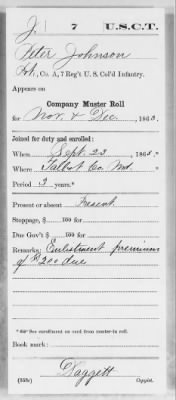 J. 7 U.S.C.T.
Peter Johnson
Pvt., Co. A, 7 Reg't U. S. Col'd Infantry.
Appears on
Company Muster Roll
for Nov. & Dec., 1863.
Joined for duty and enrolled:
When Sept. 23, 1863.*
Where Talbot Co. Md.
Period 3 years.*
Present or absent Present
Stoppage, $ 100 for
Due Gov't $ 100 for
Remarks: Enlistment premium
of $200 due
* See enrollment on card from muster-in roll.
Book mark:
Daggett
(358c) Copyist.